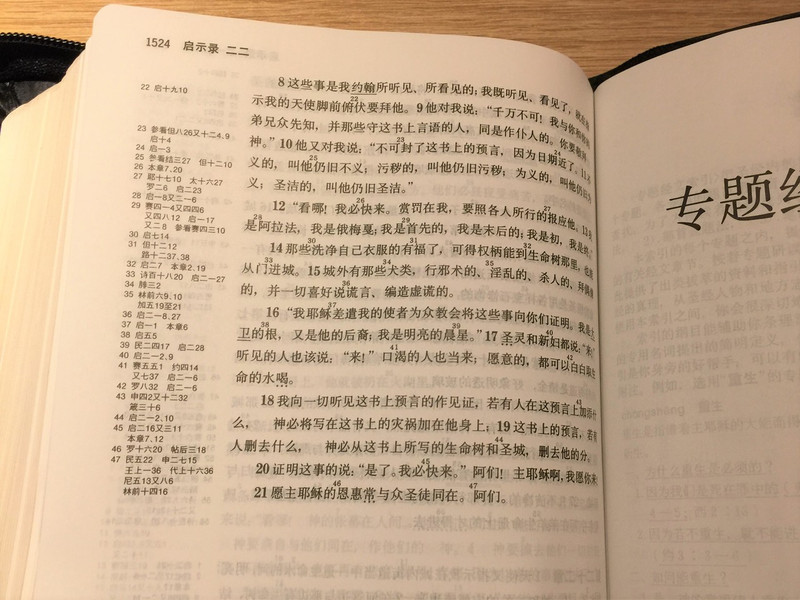 1524 启示录 二二
22 启十九10
23 参看但八26又十二4.9
启十4
24 启一3
25 参看结三27 但十二10
26 本章7.20
27 耶十七10 太十六27
罗二6 启二23
28 启一8又二一6
29 赛四一4又四四6
又四八12 启一17
又二8 参看赛四三10
30 启七14
31 但十二12
路十二37.38
32 启二7 本章2.19
33 诗百十八20 启二一27
34 腓三2
35 林前六9.10
加五19至21
36 启二一8.27
37 启一1 本章6
38 启五5
39 民二四17 启二28
40 启二一2.9
41 赛五五1 约四14
又七37 启二一6
42 罗八32 启二一6
43 申四2又十二32
箴三十6
44 启二一2.10
45 启二16又三11
本章7.12
46 罗十六20 帖后三18
47 民五22 申二七15
王上一36 代上十六36
尼五13又八6
林前十四16
8 这些事是我约翰所听见、所看见的;我既听见、看见了,就在指
示我的天使脚前俯伏要拜他。9 他对我说:“千万不可!我与你和你的
弟兄众先知,并那些守这书上言语的人,同是作仆人的。你要敬拜
神。”10 他又对我说:“不可封了这书上的预言,因为日期近了。11 不
义的,叫他仍旧不义;污秽的,叫他仍旧污秽;为义的,叫他仍旧为
义;圣洁的,叫他仍旧圣洁。”
12 “看哪!我必快来。赏罚在我,要照各人所行的报应他。13 我
是阿拉法,我是俄梅戛;我是首先的,我是末后的;我是初,我是终。”
14 那些洗净自己衣服的有福了,可得权柄能到生命树那里,也能
从门进城。15 城外有那些犬类,行邪术的、淫乱的、杀人的、拜偶像
的,并一切喜好说谎言、编造虚谎的。
16 “我耶稣差遣我的使者为众教会将这些事向你们证明。我是大
卫的根,又是他的后裔;我是明亮的晨星。”17 圣灵和新妇都说:“来!”
听见的人也该说:“来!”口渴的人也当来;愿意的,都可以白白取生
命的水喝。
18 我向一切听见这书上预言的作见证,若有人在这预言上加添什
么, 神必将写在这书上的灾祸加在他身上;19 这书上的预言,若有
人删去什么, 神必从这书上所写的生命树和圣城,删去他的分。
20 证明这事的说:“是了。我必快来。”阿们!主耶稣啊,我愿你来!
21 愿主耶稣的恩惠常与众圣徒同在。阿们。
专题经